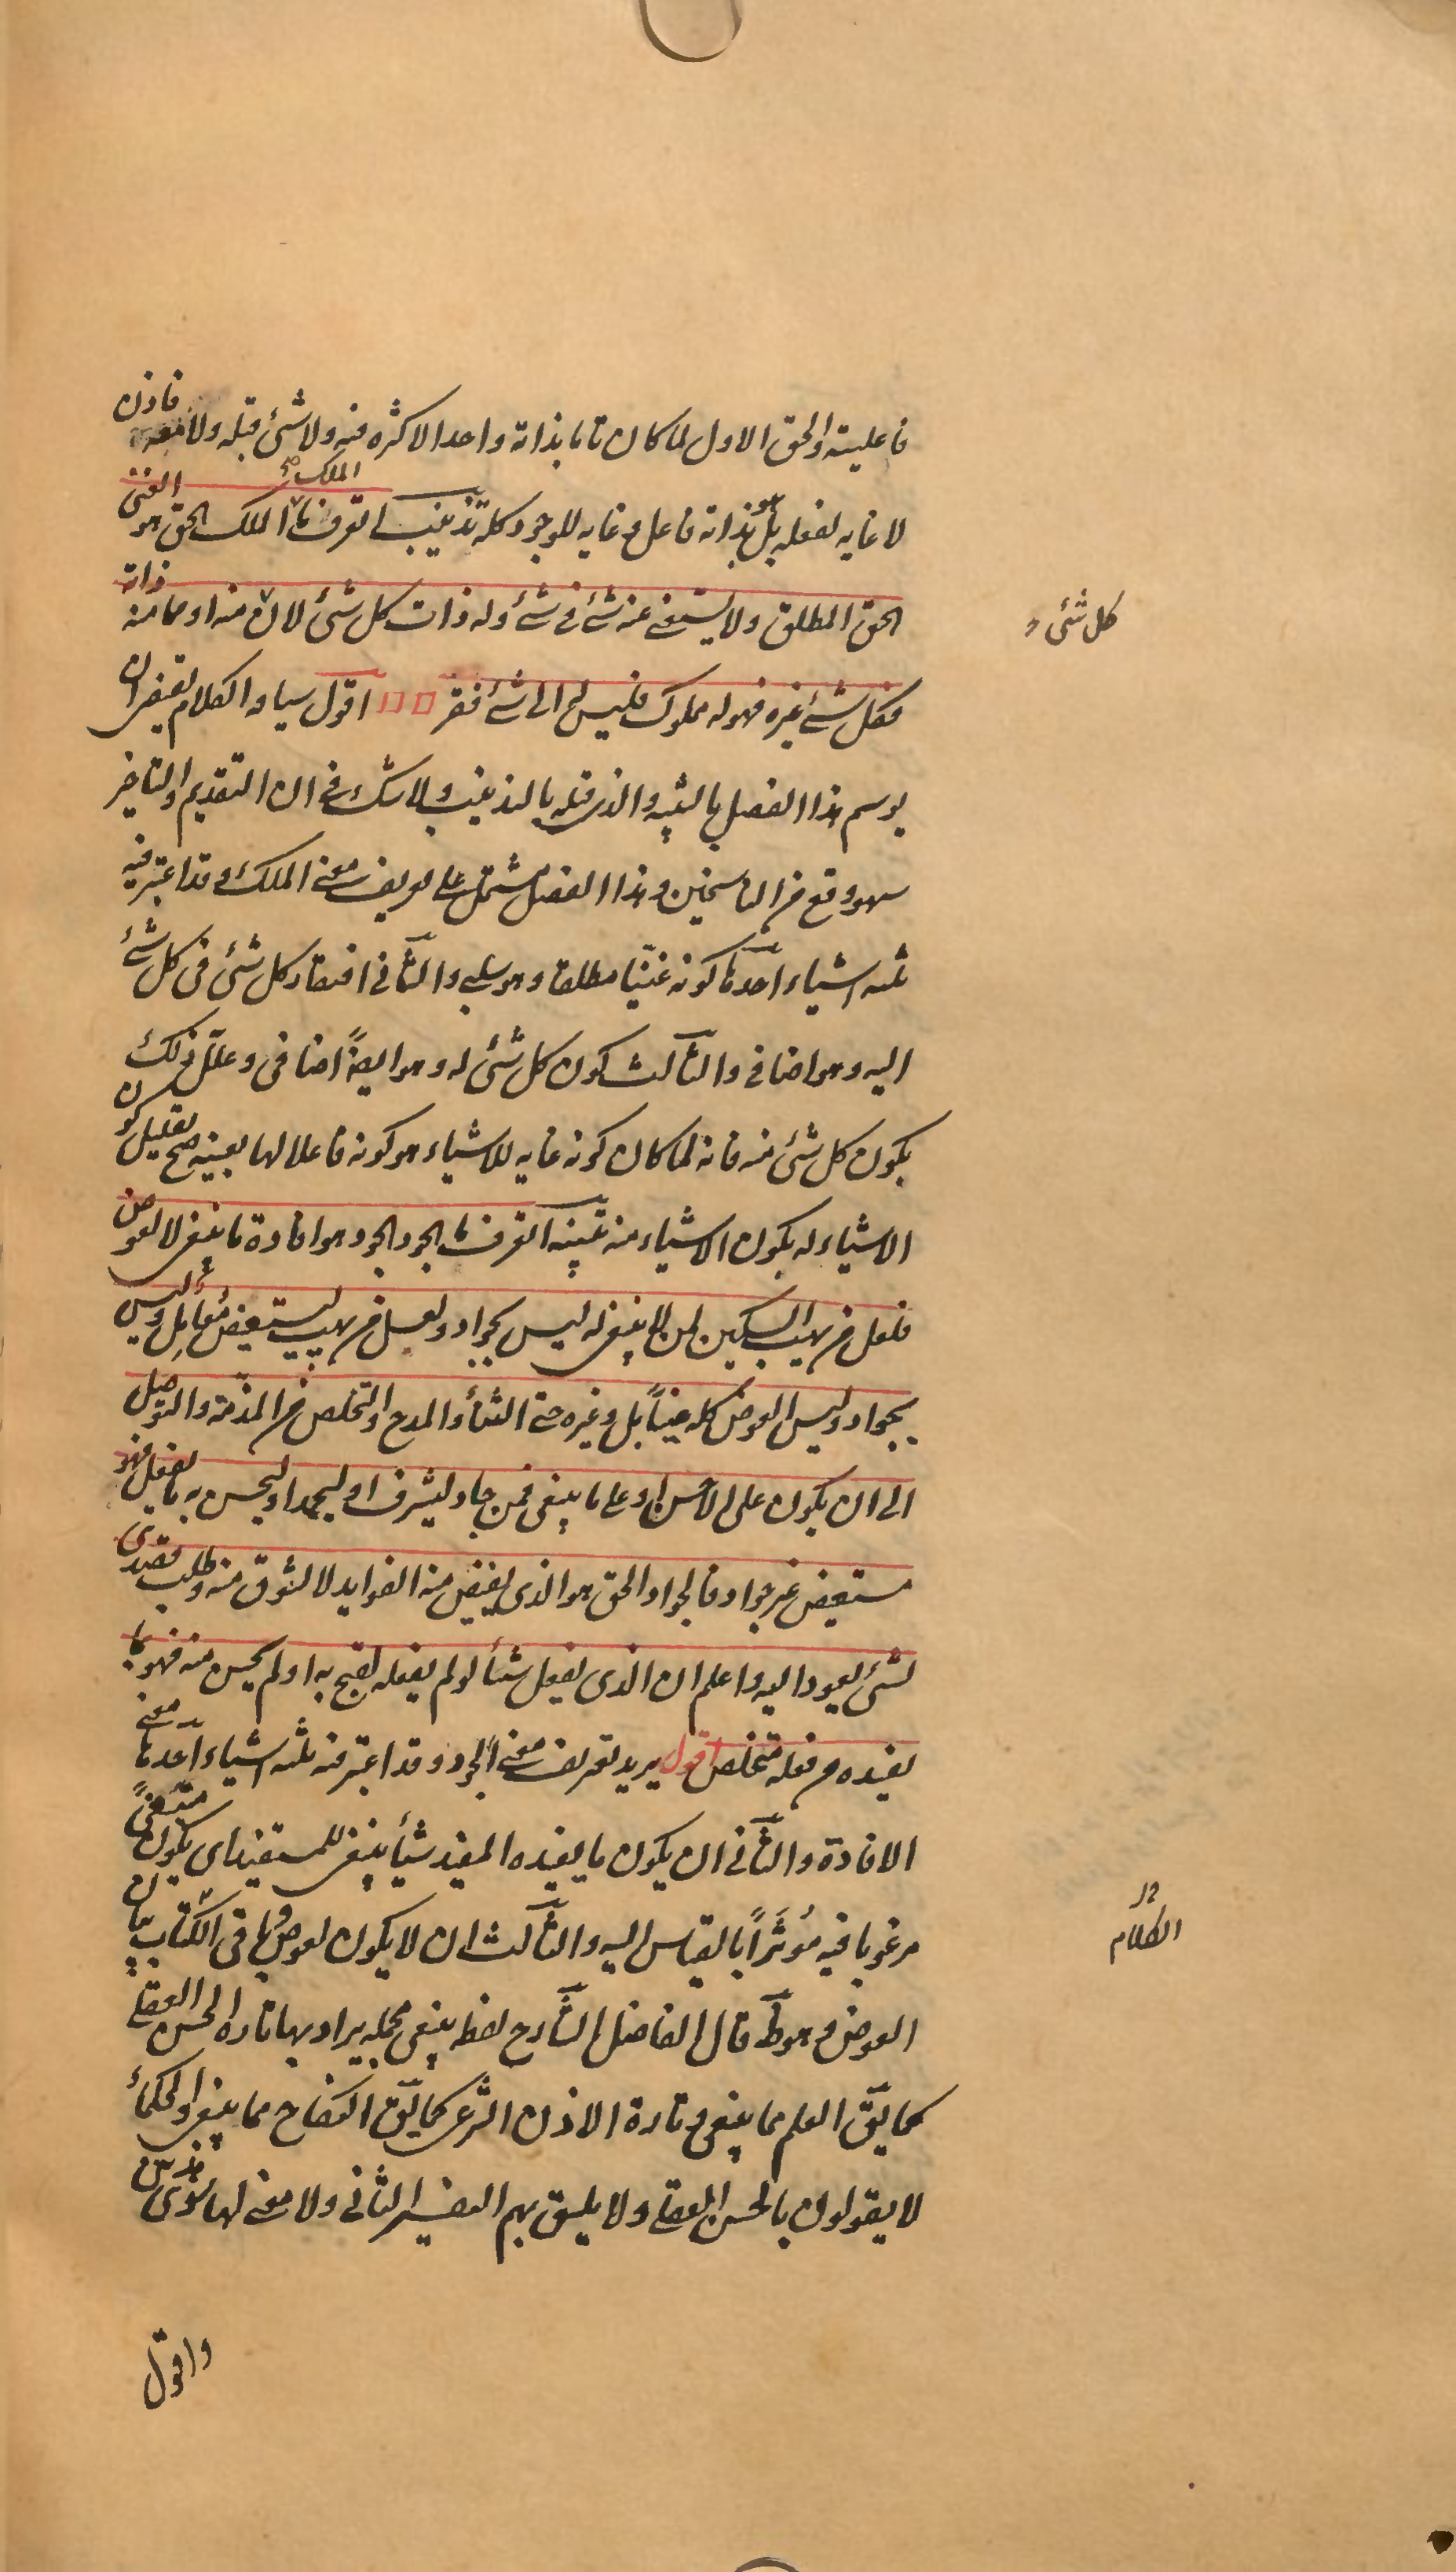 فاعليته والحق الاول لما كان تاما بذاته واحدا لا كثره فيه ولا شئ قبله ولا معه فاذن
لا غايه لفعله بل هو بذاته فاعل و غايه للوجود كله تذنيب اتعرف ما الملك الملك الحق هو الغنى
الحق المطلق ولا يستغنى عنه شئ فى شئ وله ذات كل شئ لان منه او مما منه ذاته
كل شئ
فكل شئ غيره فهو له مملوك فليس له الى شئ فقر اقول سياق الكلام يقتضى ان
يوسم هذا الفصل بالتنبيه والذى قبله بالتذنيب ولا شك فى ان التقديم والتاخير
سهو وقع من الناسخين وهذا الفصل مشتمل على تعريف معنى الملك وقد اعتبر فيه
ثلثه اشياء احدها كونه غنيا مطلقا وهو سلبى والثانى افتقار كل شئ فى كل شئ
اليه وهو اضافى والثالث كون كل شئ له وهو ايضا اضافى وعلل ذلك
بكون كل شئ منه فانه لما كان كونه غايه للاشياء هو كونه فاعلا لها بعينه صح تعليل كون
الاشياء له بكون الاشياء منه تنبيه اتعرف ما الجود الجود هو افادة ما ينبغى لا لعوض
فلعل من يهب السكين لمن لا ينبغى له ليس بجواد ولعل من يهب ليستعيض معامل وليس
بجواد وليس العوض كله عينا بل وغيره حتى الثناء والمدح والتخلص من المذمة والتوصل
الى ان يكون على الاحسن او على ما ينبغى فمن جاد ليشرف او ليحمد او ليحسن به ما يفعل فهو
مستعيض غير جواد فالجواد الحق هو الذى يفيض منه الفوايد لا لشوق منه وطلب قصدى
لشئ يعود اليه واعلم ان الذى يفعل شيئا لو لم يفعله لقبح به او لم يحسن منه فهو بما
يفيده من فعله متخلص اقول يريد تعريف معنى الجود وقد اعتبر فيه ثلثه اشياء احدها معنى
الافادة والثانى ان يكون ما يفيده المفيد شيئا ينبغى للمستفيد اى يكون مبتغى
مرغوبا فيه مؤثرا بالقياس اليه والثالث ان لا يكون لعوض وباقى الكتاب بيان
الكلام
العوض وهو ظ قال الفاضل الشارح لفظه ينبغى مجمله يراد بها تارة الحسن العقلى
كما يق العلم مما ينبغى وتارة الاذن الشرعى كما يق النكاح مما ينبغى والحكماء
لا يقولون بالحسن العقلى ولا يليق بهم التفسير الثانى ولا معنى لها سوى هذين
واقول